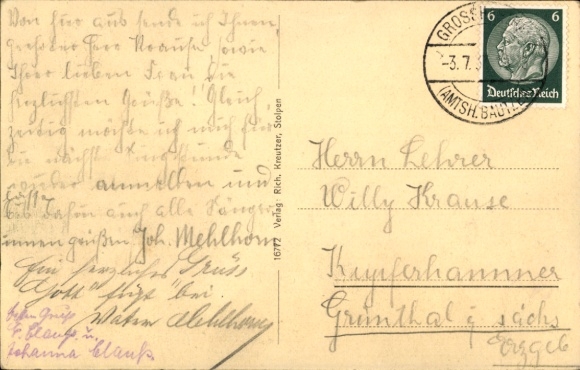 Von hier aus sende ich Ihnen,
geehrter Herr Krause sowie
Ihrer lieben Frau die
herzlichsten Grüße! Gleich
zeitig möchte ich mich für
die nächste Singstunde
wieder anmelden und
bis dahin auch alle Sänger
innen grüßen Joh. Mehlhorn
Ein herzliches "Grüss
Gott" fügt bei
Walter Mehlhorn
Gruß
E. Clauß u.
Johanna Clauß
16772 Verlag: Rich. Kreutzer, Stolpen
GROSSH
-3.7.3
(AMTSH. BAUTZEN)
6 6
Deutsches Reich
Herrn Lehrer
Willy Krause
Kupferhammer
Grünthal i/ sächs
Erzgeb